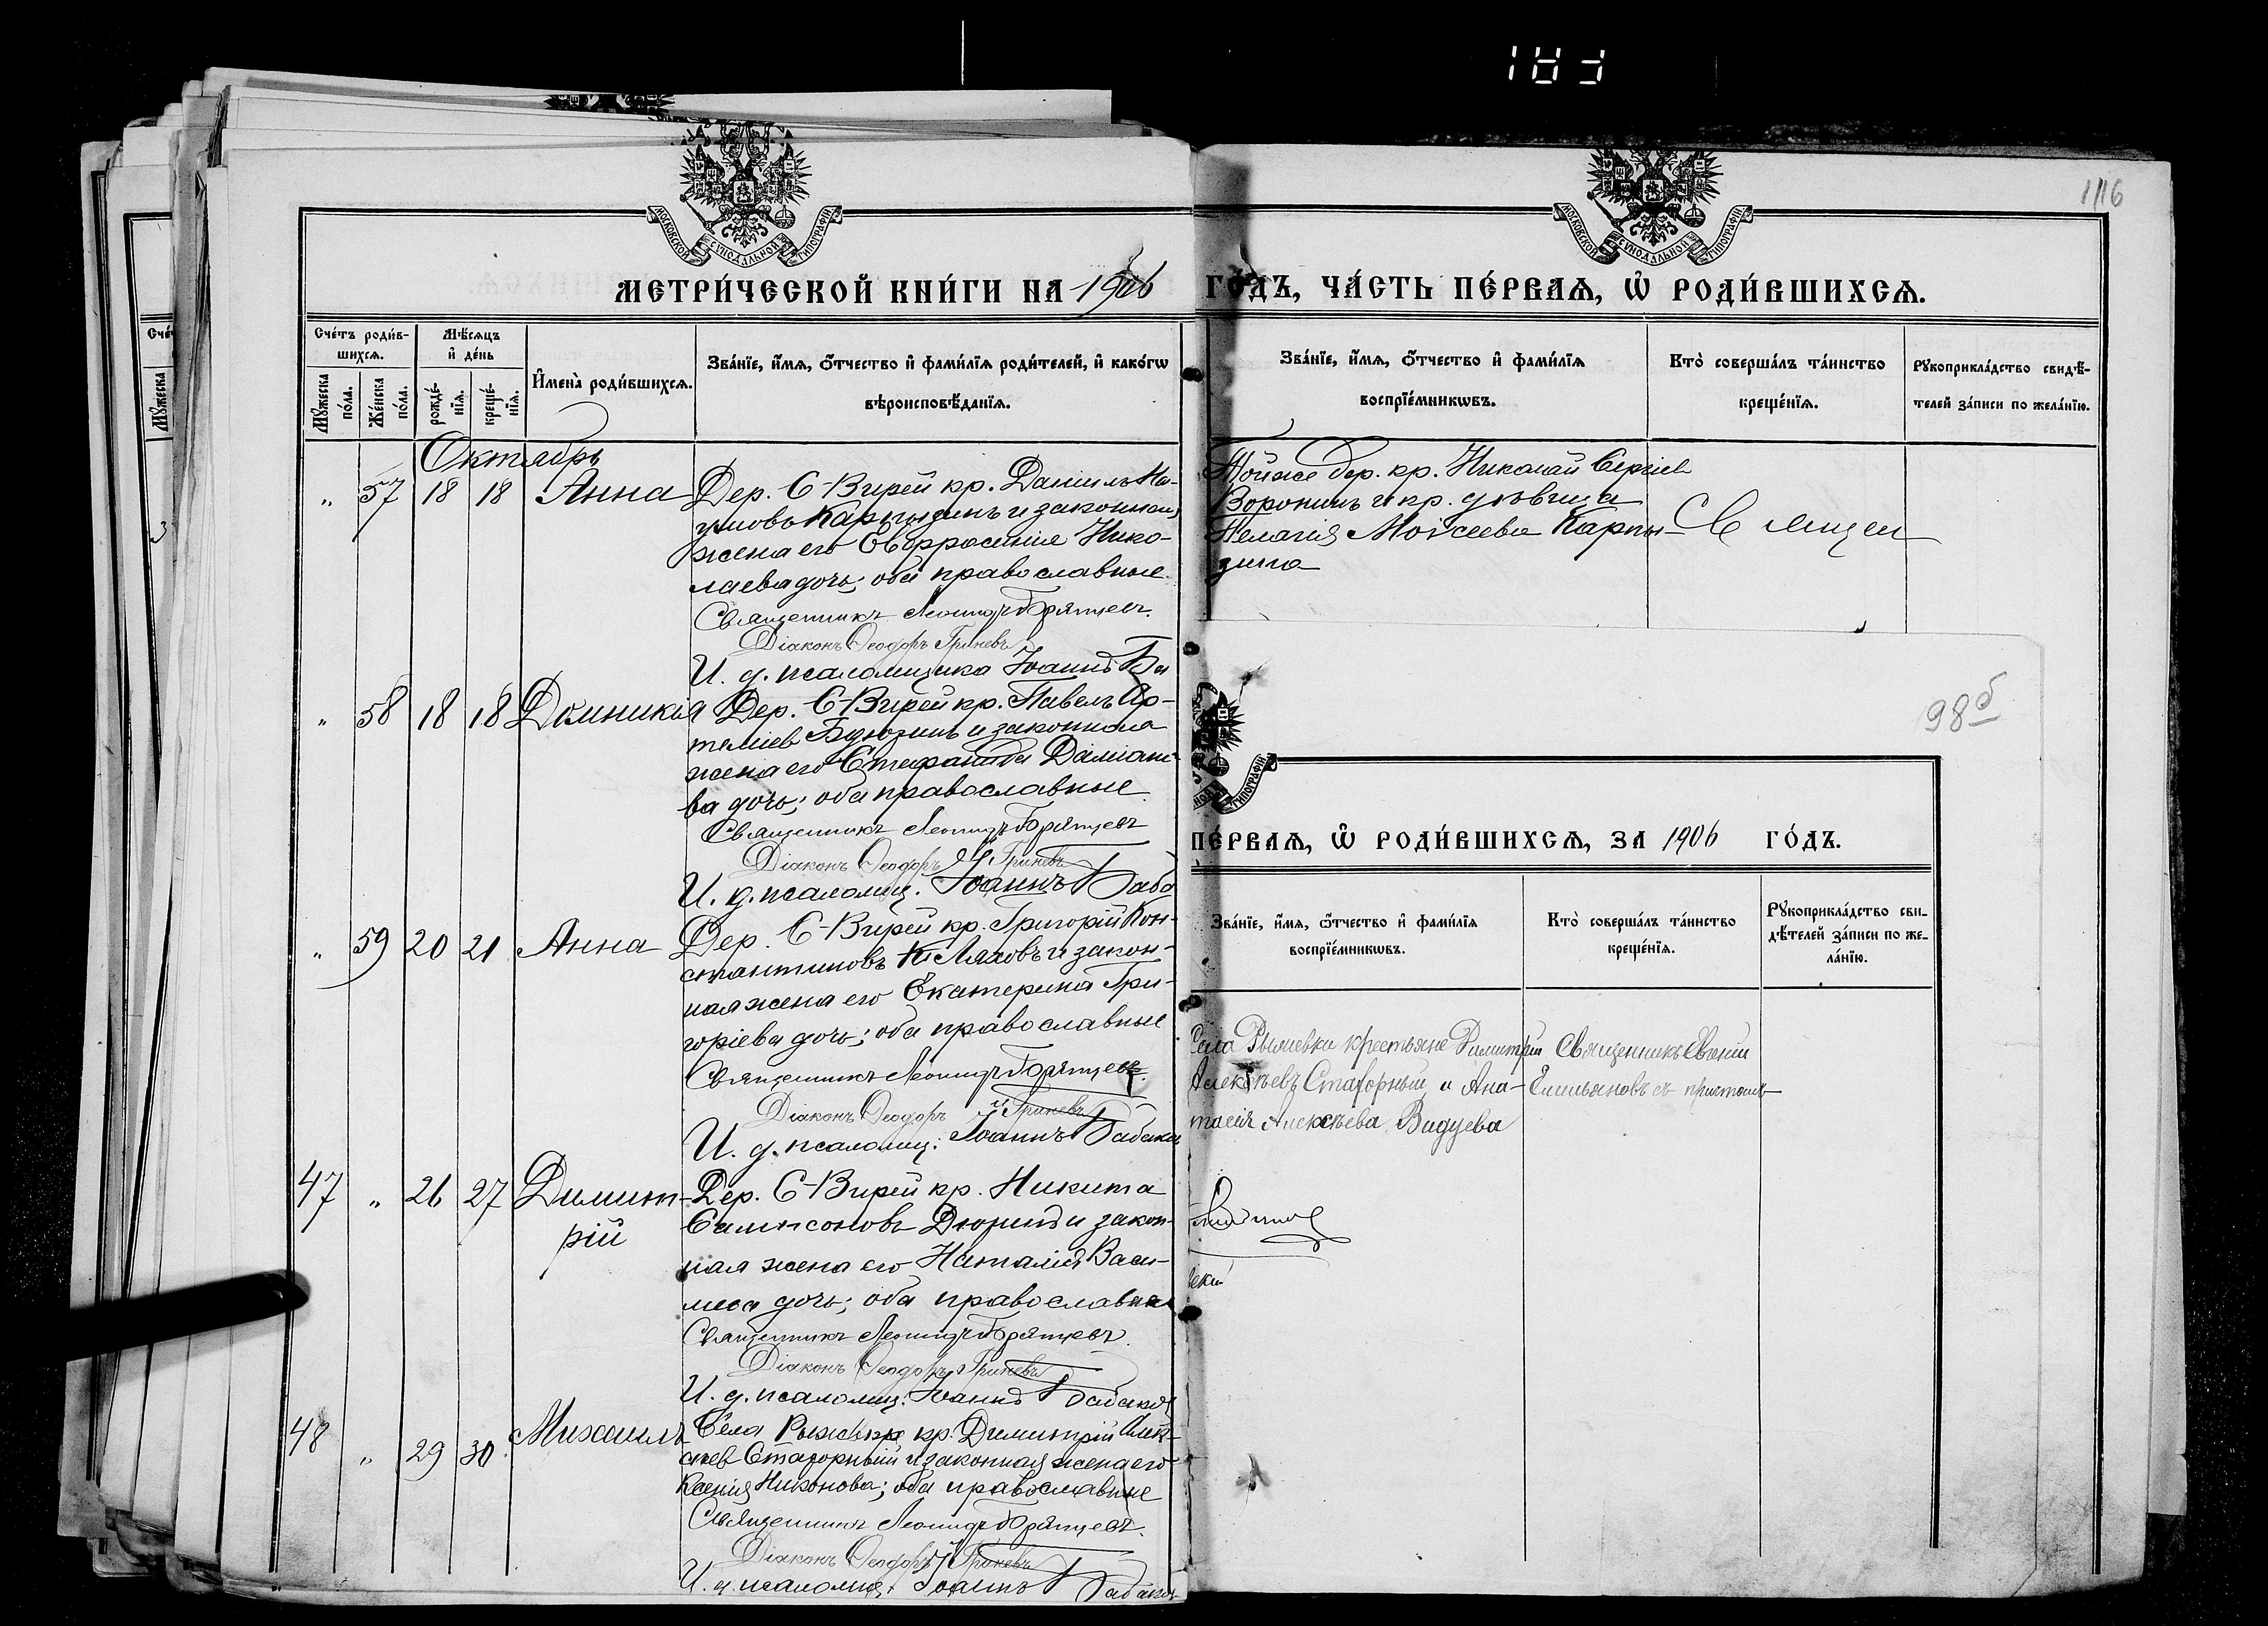 116
МОСКОВСКОЙ СУНОДАЛЬНОЙ ТИПОГРАФІИ
МОСКОВСКОЙ СУНОДАЛЬНОЙ ТИПОГРАФІИ
МЕТРИ́ЧЕСКОЙ КНИ́ГИ НА 1906 ГО́ДЪ, ЧА́СТЬ ПЕ́РВАѦ, Ѡ҆ РОДИ́ВШИХСѦ.
Сче́тъ роди́в-
шихсѧ.
Мꙋ́жеска по́ла.
Же́нска по́ла.
Мѣ́сѧцъ
и҆ де́нь
рожде́-
нїѧ.
креще́-
нїѧ.
И҆мена̀ роди́вшихсѧ.
Зва́нїе, и҆́мѧ, ѻ҆́тчество и҆ фами́лїѧ роди́телей, и҆ како́гѡ
вѣроисповѣ́данїѧ.
Зва́нїе, и҆́мѧ, ѻ҆́тчество и҆ фами́лїѧ
воспрїе́мникѡвъ.
Кто̀ соверша́лъ та́инство
креще́нїѧ.
Рꙋкоприкла́дство свидѣ́-
телей за́писи по жела́нїю.
Октябрь
„ 57 18 18 Анна
Дер. С-Вирей кр. Даніилъ На-
умовъ Карпызинъ и законная
жена его Евфросинія Нико-
лаева дочь; оба православные.
Священникъ Леонидъ Брянцевъ.
Діаконъ Ѳеодоръ Гриневъ
И. д. псаломщика Іоаннъ Ба
Тойже дер. кр. Николай Сергіев
Воронинъ и кр. дѣвица
Пелагія Моісеева Карпы-
зина
Священ
„ 58 18 18 Домникія
Дер. С-Вирей кр. Павелъ Ар-
теміев и законная
жена его Стефанида Даміано-
ва дочь; оба православные
Священникъ Леонидъ Брянцевъ
Діаконъ Ѳеодоръ Гриневъ
И. д. псаломщ. Іоаннъ Баба
„ 59 20 21 Анна
Дер. С-Вирей кр. Григорій Кон-
стантиновъ Ляховъ и закон-
ная жена его Екатерина Гри-
горіева дочь; оба православные
Священникъ Леонидъ Брянцевъ.
Діаконъ Ѳеодоръ Гриневъ
И. д. псаломщ. Іоаннъ Бабаков
47 „ 26 27 Димит-
рій
Дер. С-Вирей кр. Никита
Сампсоновъ Дюринъ и закон-
ная жена его Наталія Васи-
лева дочь; оба православн
Священникъ Леонидъ Брянцевъ.
Діаконъ Ѳеодоръ Гриневъ
И. д. псаломщ. Іоаннъ Бабаков
48 „ 29 30 Михаилъ
Села кр. Димитрій Алек-
сѣев Стагорный и законная жена его
Ксенія Никонова; оба православные
Священникъ Леонидъ Брянцевъ.
Діаконъ Ѳеодоръ Гриневъ
И. д. псаломщ. Іоаннъ Бабаков
98б
ТИПОГРАФІИ
ПЕ́РВАѦ, Ѡ҆ РОДИ́ВШИХСѦ, ЗА 1906 ГО́ДЪ.
Зва́нїе, и҆́мѧ, ѻ҆́тчество и҆ фами́лїѧ
воспрїе́мникѡвъ.
Кто̀ соверша́лъ та́инство
креще́нїѧ.
Рꙋкоприкла́дство сви-
дѣ́телей за́писи по же-
ла́нїю.
Села крестьяне Димитрій
Алексѣевъ Стагорный и Ана-
тасія Алексѣева Видуева
Священникъ Евгеній
Емильяновъ съ притомъ